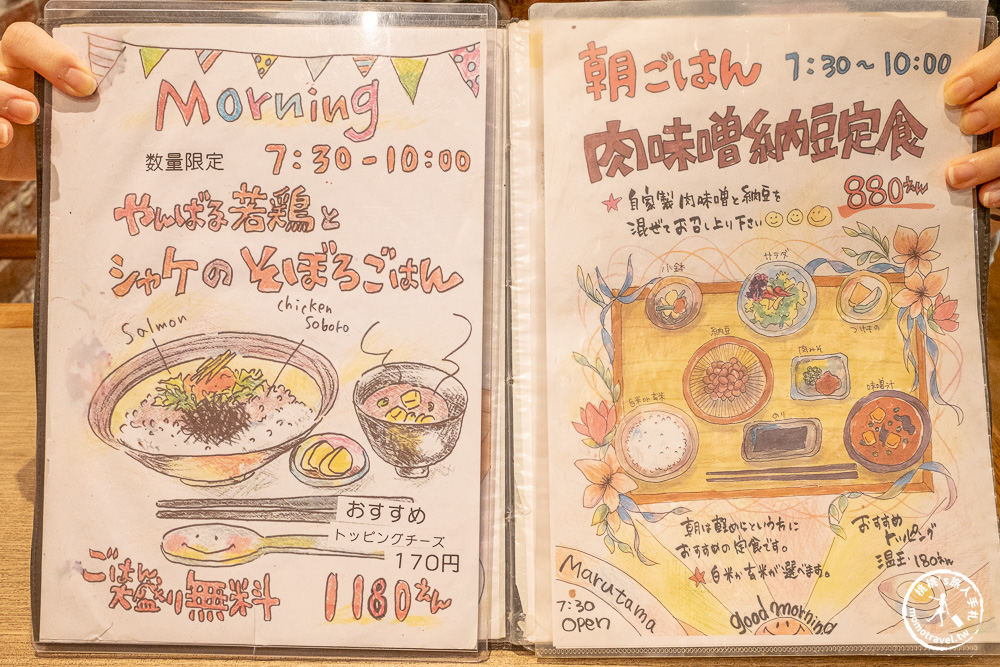 Morning
数量限定 7:30-10:00
やんばる若鶏と
シャケのそぼろごはん
Salmon
chicken
Soboro
おすすめ
トッピングチーズ
170円
ごはん
大盛り無料 1180えん
朝ごはん 7:30~10:00
肉味噌納豆定食
880えん
★自家製肉味噌と納豆を
混ぜてお召し上り下さい
小鉢
サラダ
つけもの
納豆
肉みそ
白米or玄米
のり
味噌汁
朝は軽めにという方に
おすすめの定食です。
★白米か玄米が選べます。
おすすめ
トッピング
温玉 180えん
Marutama
7:30
open
good morning
momotravel.tw